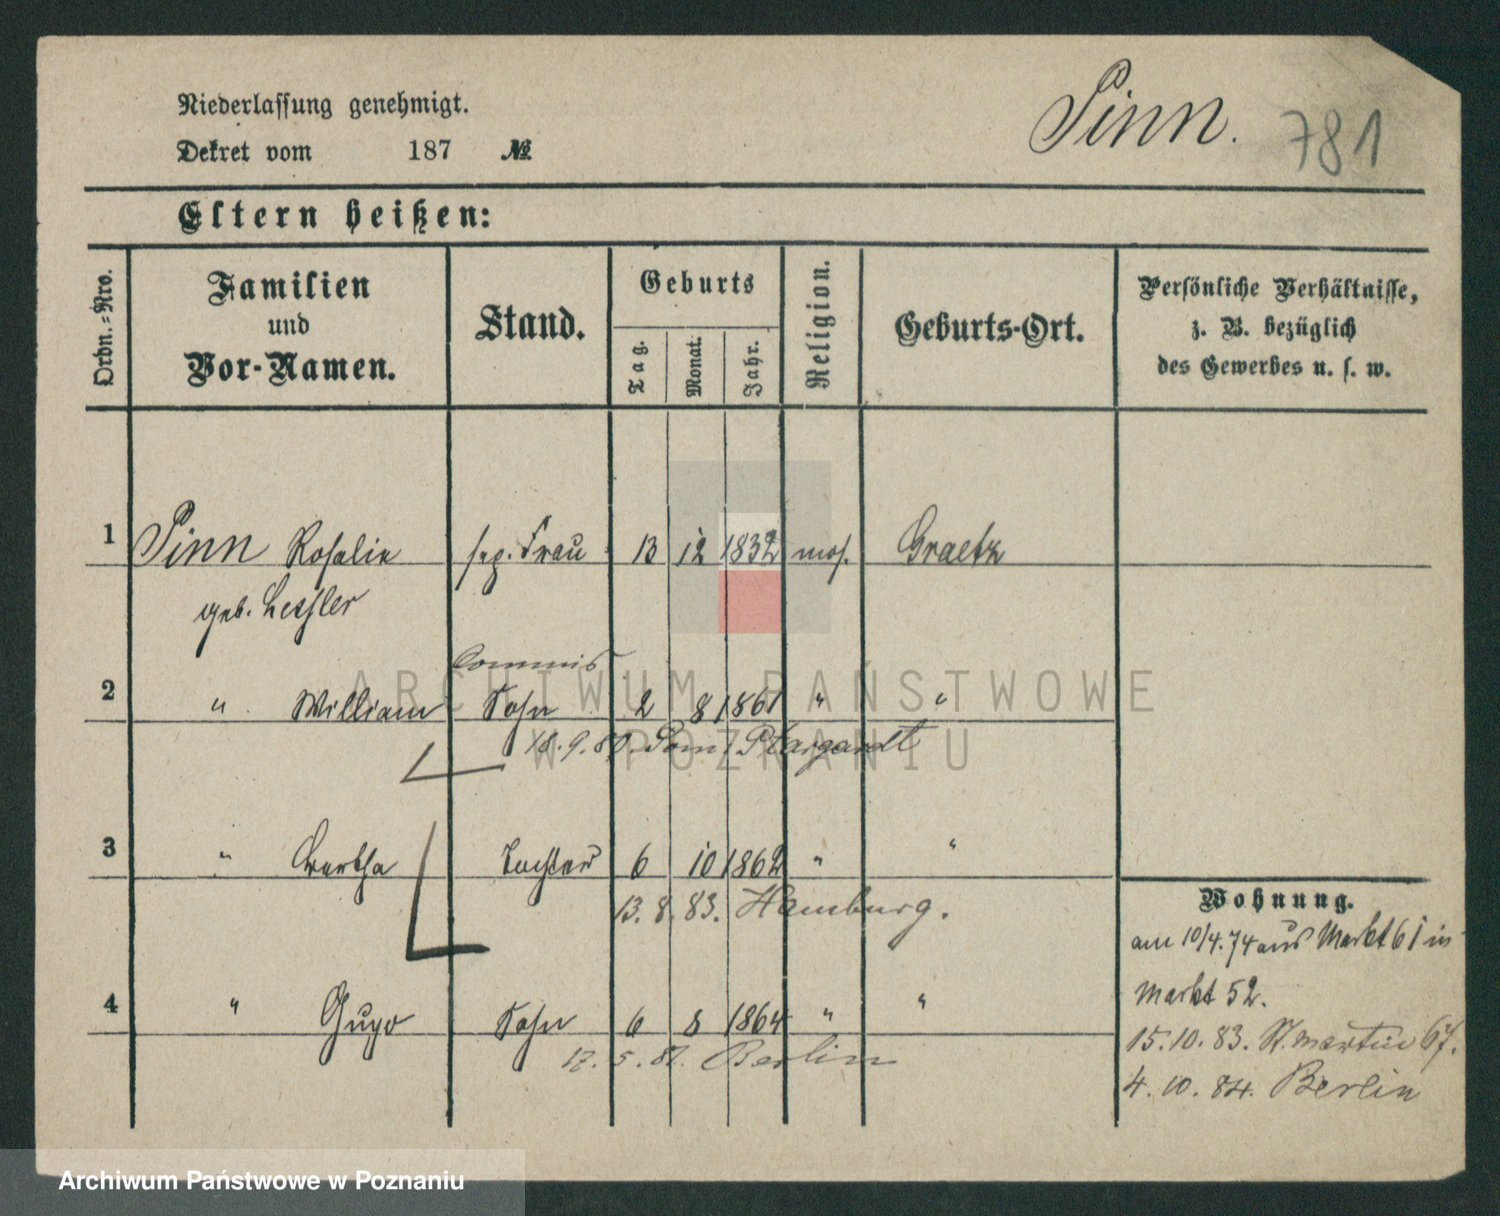 Niederlassung genehmigt.
Pinn.
781
Dekret vom 187 №
Eltern heißen:
Ordn.-Nro.
Familien
und
Vor-Namen.
Stand.
Geburts
Tag.
Monat.
Jahr.
Religion.
Geburts-Ort.
Persönliche Verhältnisse,
z. B. bezüglich
des Gewerbes u. s. w.
1 Pinn Rosalie sep. Frau 13 12 1832 mos. Graetz
geb. Lessler
Commis
2 " William Sohn 2 8 1861 " "
18.9.80. Pom. Stargardt
3 " Bertha Tochter 6 10 1862 " "
13. 8. 83. Hamburg.
Wohnung.
am 10/4.74 aus Markt 61 in
Markt 52.
4 " Hugo Sohn 6 8 1864 " "
15.10.83. St. Martin 67.
17. 5. 81. Berlin
4. 10. 84. Berlin
ARCHIWUM PAŃSTWOWE
W POZNANIU
Archiwum Państwowe w Poznaniu